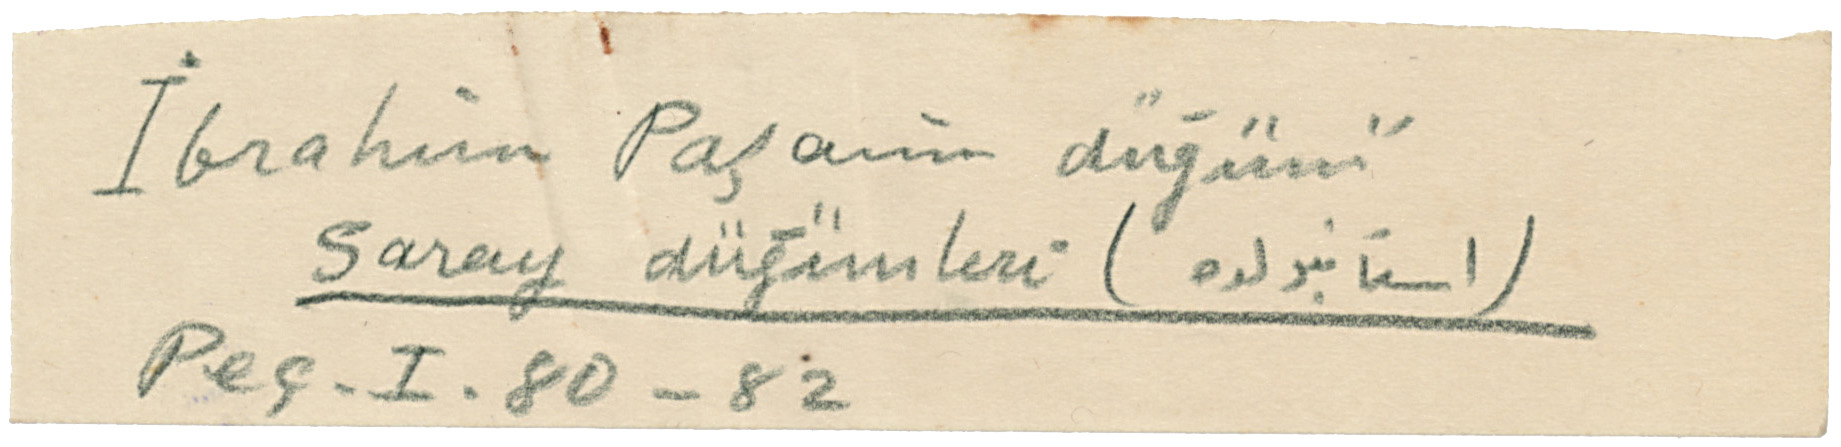 İbrahim Paşanın düğünü
Saray düğünleri (استانبولده)
Peç. I. 80 - 82